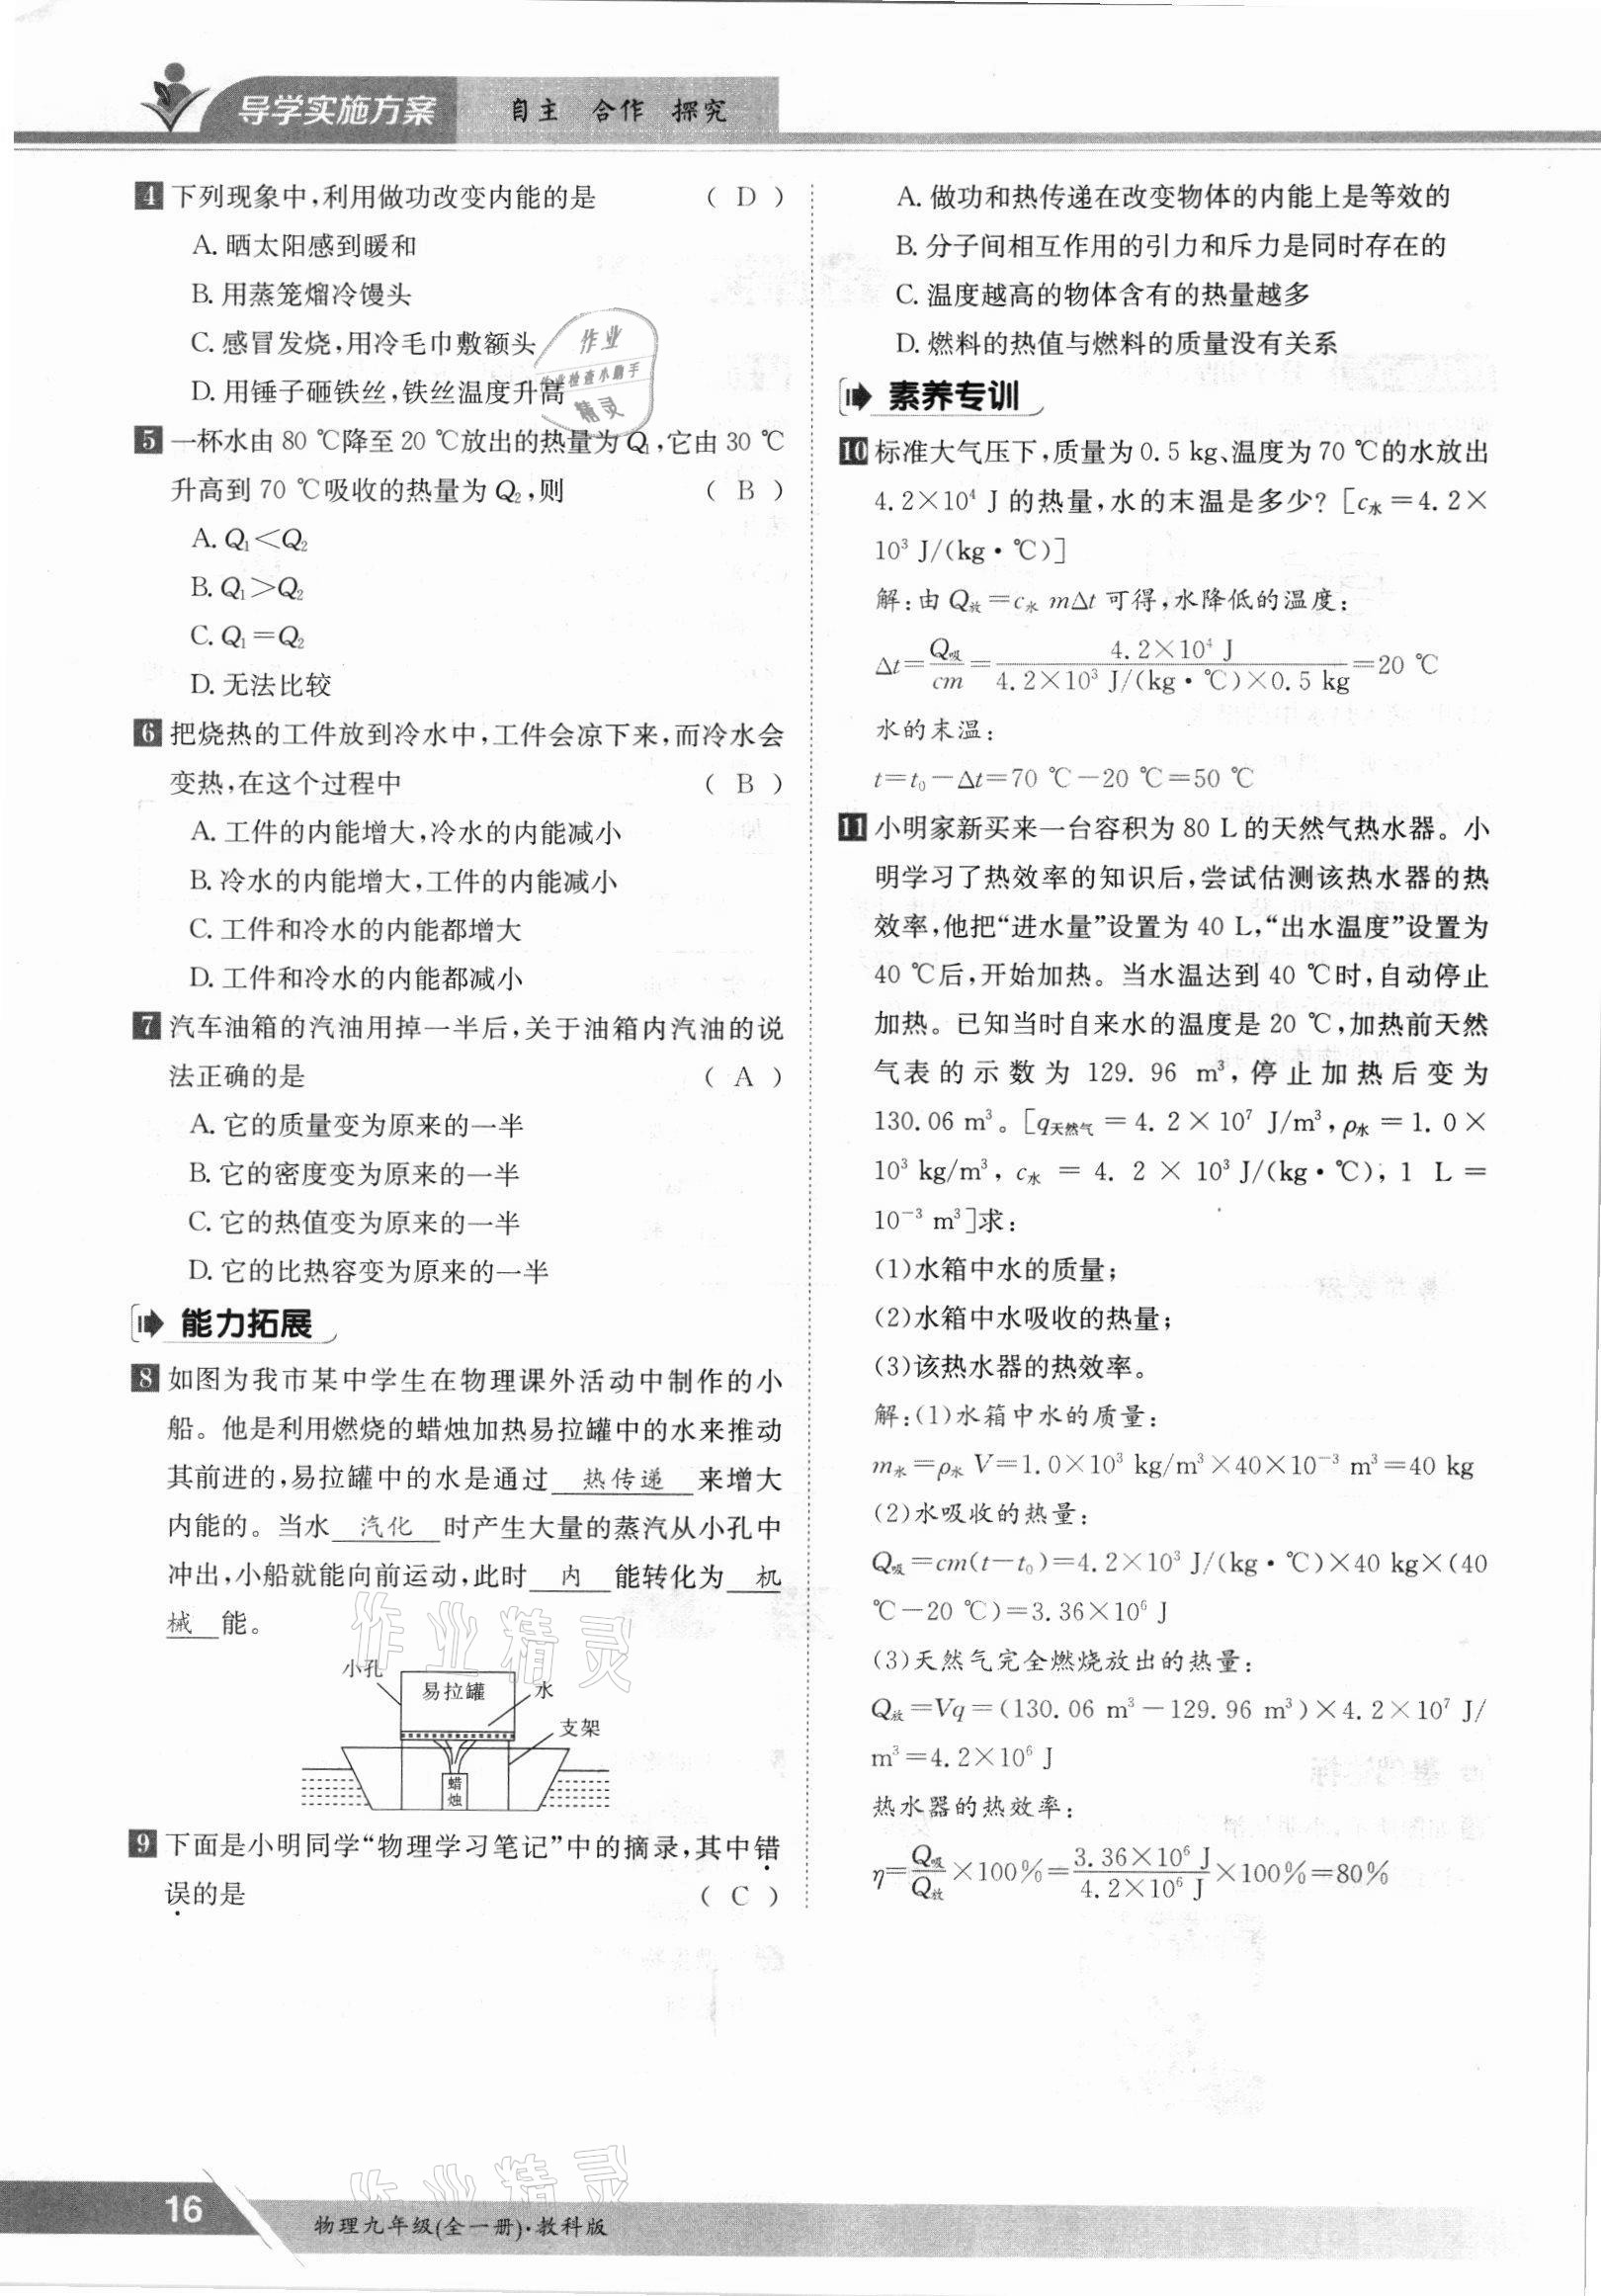 导学实施方案 自主 合作 探究
4 下列现象中,利用做功改变内能的是 ( D )
A. 晒太阳感到暖和
B. 用蒸笼熘冷馒头
C. 感冒发烧,用冷毛巾敷额头
D. 用锤子砸铁丝,铁丝温度升高
5 一杯水由 80 ℃降至 20 ℃放出的热量为 Q₁,它由 30 ℃
升高到 70 ℃吸收的热量为 Q₂,则 ( B )
A. Q₁＜Q₂
B. Q₁＞Q₂
C. Q₁＝Q₂
D. 无法比较
6 把烧热的工件放到冷水中,工件会凉下来,而冷水会
变热,在这个过程中 ( B )
A. 工件的内能增大,冷水的内能减小
B. 冷水的内能增大,工件的内能减小
C. 工件和冷水的内能都增大
D. 工件和冷水的内能都减小
7 汽车油箱的汽油用掉一半后,关于油箱内汽油的说
法正确的是 ( A )
A. 它的质量变为原来的一半
B. 它的密度变为原来的一半
C. 它的热值变为原来的一半
D. 它的比热容变为原来的一半
能力拓展
8 如图为我市某中学生在物理课外活动中制作的小
船。他是利用燃烧的蜡烛加热易拉罐中的水来推动
其前进的,易拉罐中的水是通过 热传递 来增大
内能的。当水 汽化 时产生大量的蒸汽从小孔中
冲出,小船就能向前运动,此时 内 能转化为 机
械 能。
小孔
易拉罐
水
支架
蜡
烛
9 下面是小明同学“物理学习笔记”中的摘录,其中错
误的是 ( C )
A. 做功和热传递在改变物体的内能上是等效的
B. 分子间相互作用的引力和斥力是同时存在的
C. 温度越高的物体含有的热量越多
D. 燃料的热值与燃料的质量没有关系
素养专训
10 标准大气压下,质量为 0.5 kg、温度为 70 ℃的水放出
4.2×10⁴ J 的热量,水的末温是多少? [c水＝4.2×
10³ J/(kg·℃)]
解:由 Q放＝c水 mΔt 可得,水降低的温度:
Δt＝Q吸/cm＝4.2×10⁴ J/4.2×10³ J/(kg·℃)×0.5 kg＝20 ℃
水的末温:
t＝t₀－Δt＝70 ℃－20 ℃＝50 ℃
11 小明家新买来一台容积为 80 L 的天然气热水器。小
明学习了热效率的知识后,尝试估测该热水器的热
效率,他把“进水量”设置为 40 L,“出水温度”设置为
40 ℃后,开始加热。当水温达到 40 ℃时,自动停止
加热。已知当时自来水的温度是 20 ℃,加热前天然
气表的示数为 129.96 m³,停止加热后变为
130.06 m³。[q天然气＝4.2×10⁷ J/m³,ρ水＝1.0×
10³ kg/m³, c水＝4.2×10³ J/(kg·℃), 1 L＝
10⁻³ m³]求:
(1)水箱中水的质量;
(2)水箱中水吸收的热量;
(3)该热水器的热效率。
解:(1)水箱中水的质量:
m水＝ρ水 V＝1.0×10³ kg/m³×40×10⁻³ m³＝40 kg
(2)水吸收的热量:
Q吸＝cm(t－t₀)＝4.2×10³ J/(kg·℃)×40 kg×(40
℃－20 ℃)＝3.36×10⁶ J
(3)天然气完全燃烧放出的热量:
Q放＝Vq＝(130.06 m³－129.96 m³)×4.2×10⁷ J/
m³＝4.2×10⁶ J
热水器的热效率:
η＝Q吸/Q放×100%＝3.36×10⁶ J/4.2×10⁶ J×100%＝80%
作业
作业检查小助手
精灵
作业精灵
作业精灵
16
物理九年级(全一册)·教科版